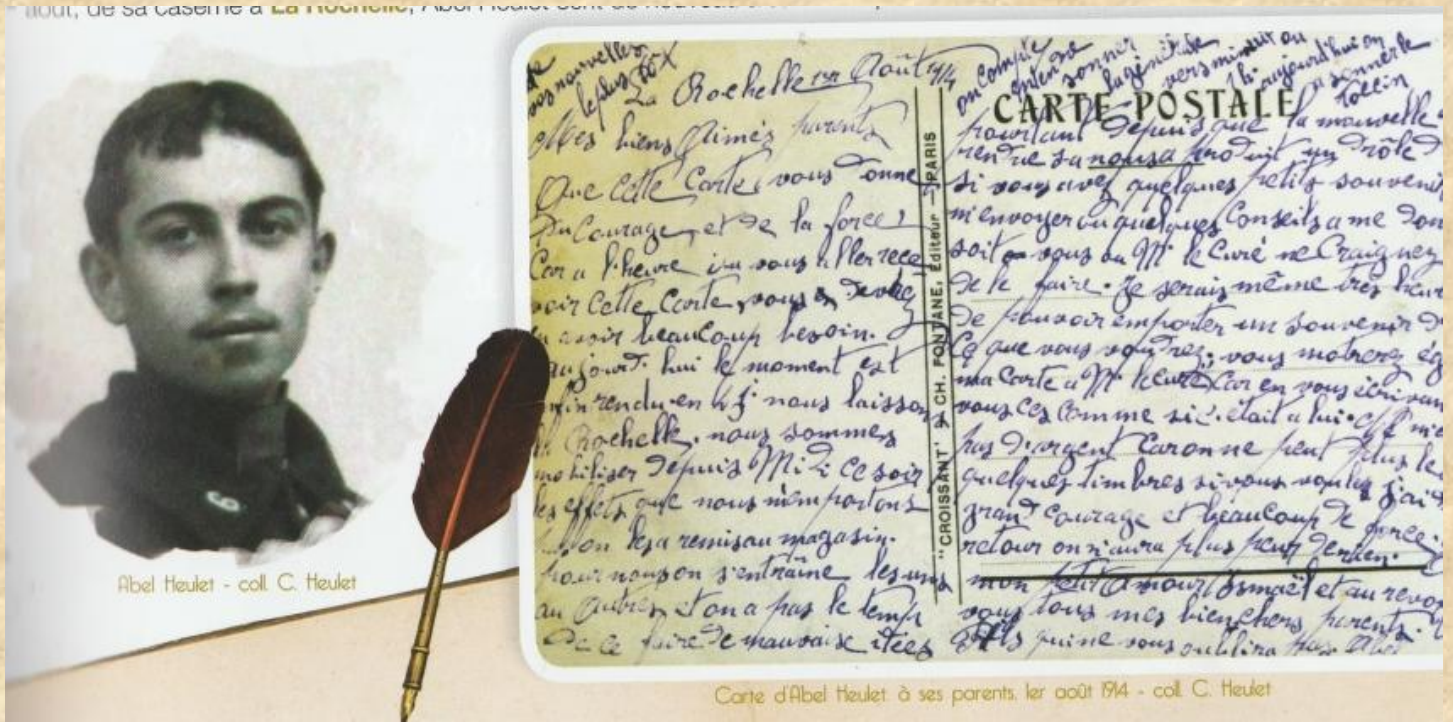 août, de sa caserne à La Rochelle, Abel Heulet
Abel Heulet - coll. C. Heulet
vos nouvelles
le plus tôt
La Rochelle 1er Août 1914
Mes biens Aimés parents
Que cette Carte vous donne
Du Courage et de la force
Car a l'heure ou vous aller rece
voir cette Carte, vous devez
avoir beaucoup besoin.
aujourd'hui le moment est
enfin rendu en 4 j. nous laissons
la Rochelle. nous sommes
mobiliser depuis Midi ce soir
les effets que nous n'emportons
on les a remis au magasin.
pour nous on s'entraine les uns
au autres et on a pas le temp
de ce faire de mauvaise itées
"CROISSANT" CH. FONTANE, Éditeur - PARIS
on compte
entendre sonner
la générale
vers minuit ou
1h. aujourd'hui on
a sonner le
tocsin
CARTE POSTALE
pourtant depuis que la nouvelle
rendue sa nous a produit un drôle d
si vous avez quelques petits souvenir
m'envoyer ou quelques Conseils a me don
soit vous ou Mr le Curé ne Craignez
de le faire. Je serais même très heur
De pouvoir emporter un souvenir D
Ce que vous voudrez; vous motrerez ég
ma carte a Mr le curé Car en vous écrivan
vous ces comme si c'était a lui.
pas d'argent Car on ne peut plus le
quelques timbres si vous voulez j'ai
grand courage et beaucoup de force.
retour on n'aura plus peur de rien.
mon petit amour Ismaël et au revoi
vous tous mes bien chers parents.
fils qui ne vous oubliera pas. Abel
Carte d'Abel Heulet à ses parents, 1er août 1914 - coll. C. Heulet